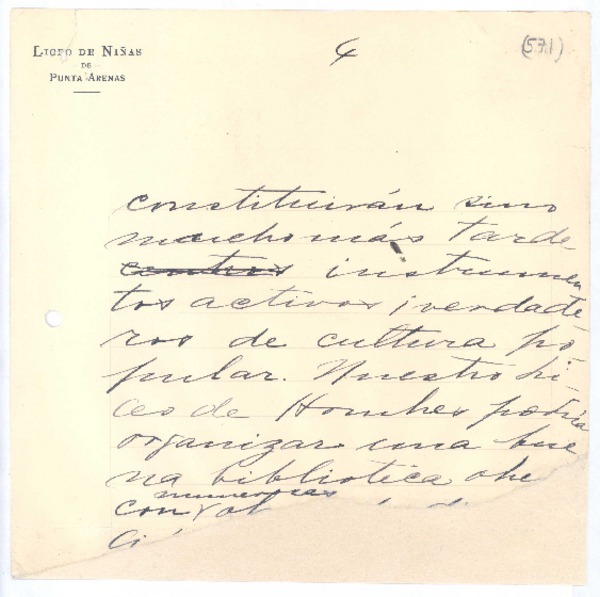 LICEO DE NIÑAS
DE
PUNTA ARENAS
4
(571)
constituirán sino
mucho más tarde
centros instrumen
tos activos i verdade
ros de cultura po
pular. Nuestro Li-
ceo de Hombres podría
organizar una bue
na biblioteca
numerosas
con